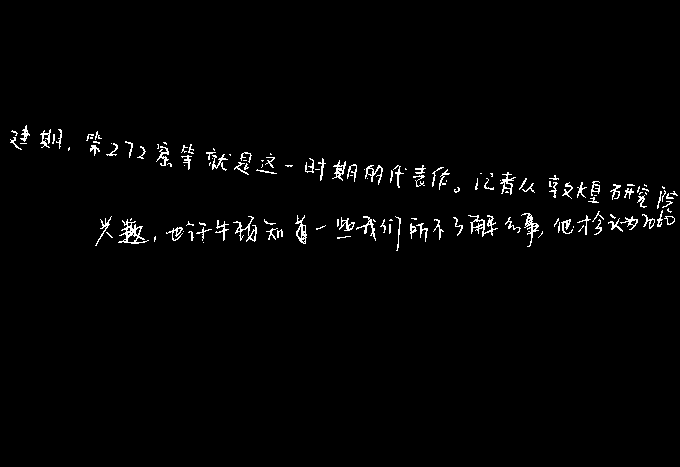 建期,第272窟等就是这一时期的代表作。记者从敦煌研究院
兴趣,也许牛顿知道一些我们所不了解的事,他才会认为2060